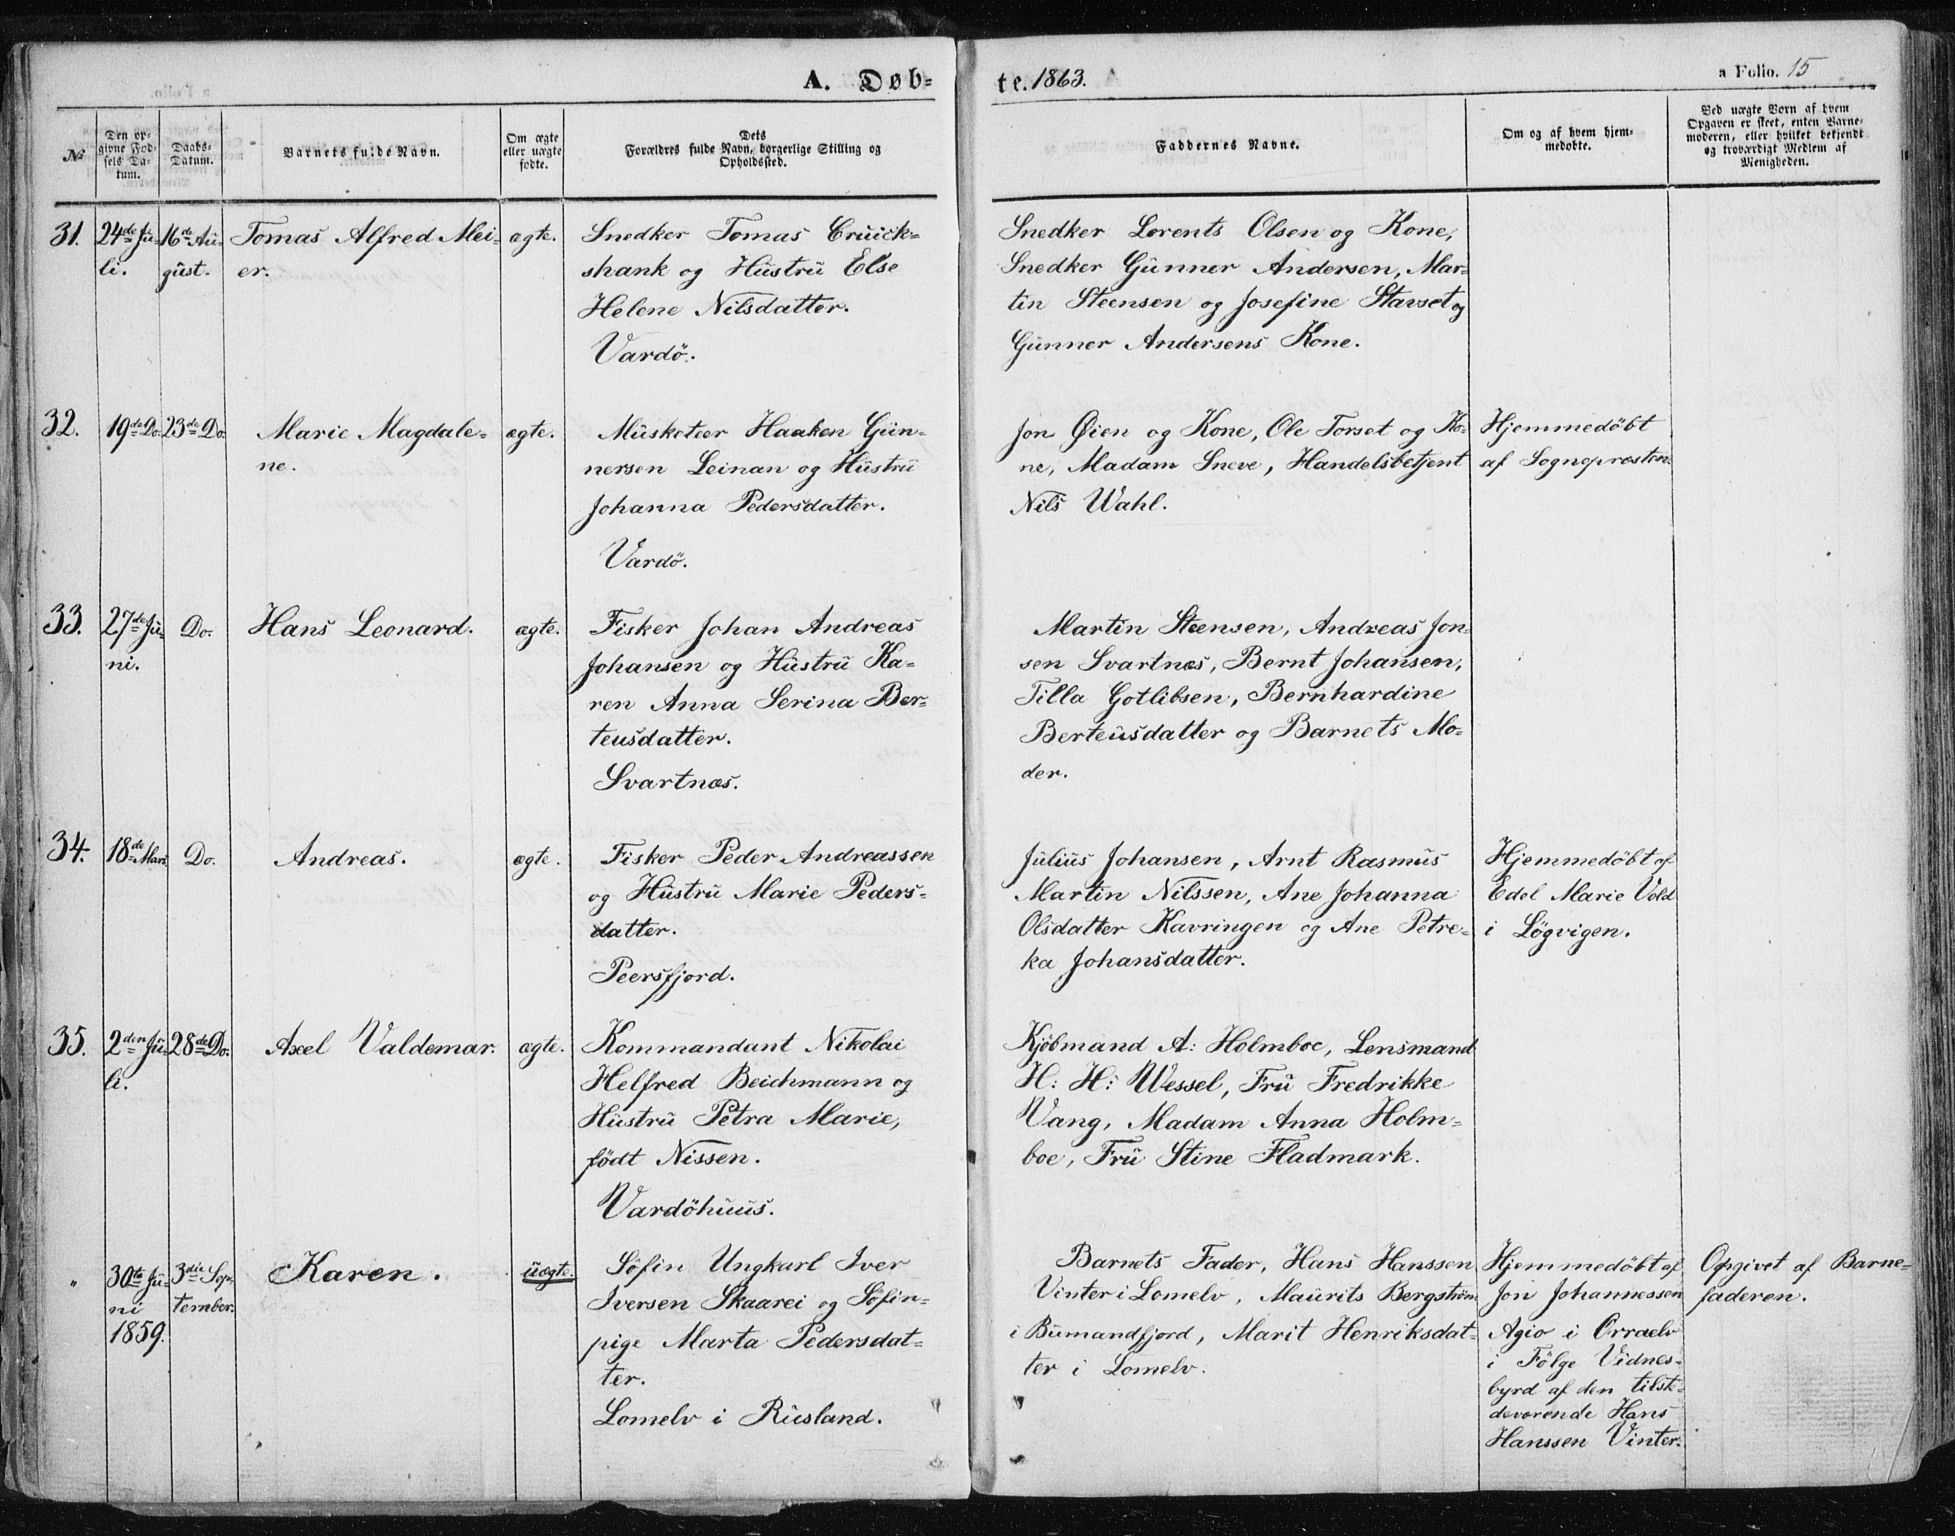 A. Døb-
te. 1863.
a Folio. 15
№
Den op-
givne Fød-
sels Da-
tum.
Daabs-
Datum.
Barnets fulde Navn.
Om ægte
eller uægte
fødte.
Dets
Forældres fulde Navn, borgerlige Stilling og
Opholdssted.
Faddernes Navne.
Om og af hvem hjem-
medøbte.
Ved uægte Børn af hvem
Opgaven er skeet, enten Barne-
moderen, eller hvilket bekjendt
og troværdigt Medlem af
Menigheden.
31.
24de Ju-
li.
16de Au-
gust.
Tomas Alfred Mei-
er.
ægte.
Snedker Tomas Cruick-
shank og Hustru Else
Helene Nilsdatter.
Vardö.
Snedker Lorents Olsen og Kone,
Snedker Gunner Andersen, Mar-
tin Steensen og Josefine Stavset og
Gunner Andersens Kone.
32.
19de Do.
23de Do.
Marie Magdale-
ne.
ægte.
Musketeer Haaken Gun-
nersen Leinan og Hustru
Johanna Pedersdatter.
Vardö.
Jon Øien og Kone, Ole Torset og Ko-
ne, Madam Sneve, Handelsbetjent
Nils Wahl.
Hjemmedöbt
af Sognepresten.
33.
27de Ju-
ni.
Do.
Hans Leonard.
ægte.
Fisker Johan Andreas
Johansen og Hustru Ka-
ren Anna Serina Ber-
teusdatter.
Svartnæs.
Martin Steensen, Andreas Jon-
sen Svartnæs, Bernt Johansen,
Tilla Gotlibsen, Bernhardine
Berteusdatter og Barnets Mo-
der.
34.
18de Mars
Do.
Andreas.
ægte.
Fisker Peder Andreassen
og Hustru Marie Peders-
datter.
Peersfjord.
Julius Johansen, Arnt Rasmus
Martin Nilssen, Ane Johanna
Olsdatter Kavringen og Ane Petre-
ka Johansdatter.
Hjemmedöbt af
Edel Marie Vold
i Lögvigen.
35.
2den Ju-
li.
28de Do.
Axel Valdemar.
ægte.
Kommandant Nikolai
Helfred Beichmann og
Hustru Petra Marie,
født Nissen.
Vardöhuus.
Kjöbmand A: Holmboe, Lensmand
H: H: Wessel, Fru Fredrikke
Vang, Madam Anna Holm-
boe, Fru Stine Fladmark.
"
30te Ju-
ni
1859.
3die Sep-
tember.
Karen.
uægte.
Söfin Ungkarl Iver
Iversen Skaarei og Söfin-
pige Marta Pedersdat-
ter.
Lomelv i Rusland.
Barnets Fader, Hans Hanssen
Vinter i Lomelv, Maurits Bergström
i Bumandfjord, Marit Henriksdat-
ter i Lomelv.
Hjemmedöbt af
Jon Johannessen
Agio i Orraelv
i Fölge Vidnes-
byrd af den tilste-
deværende Hans
Hanssen Vinter.
Opgivet af Barne-
faderen.